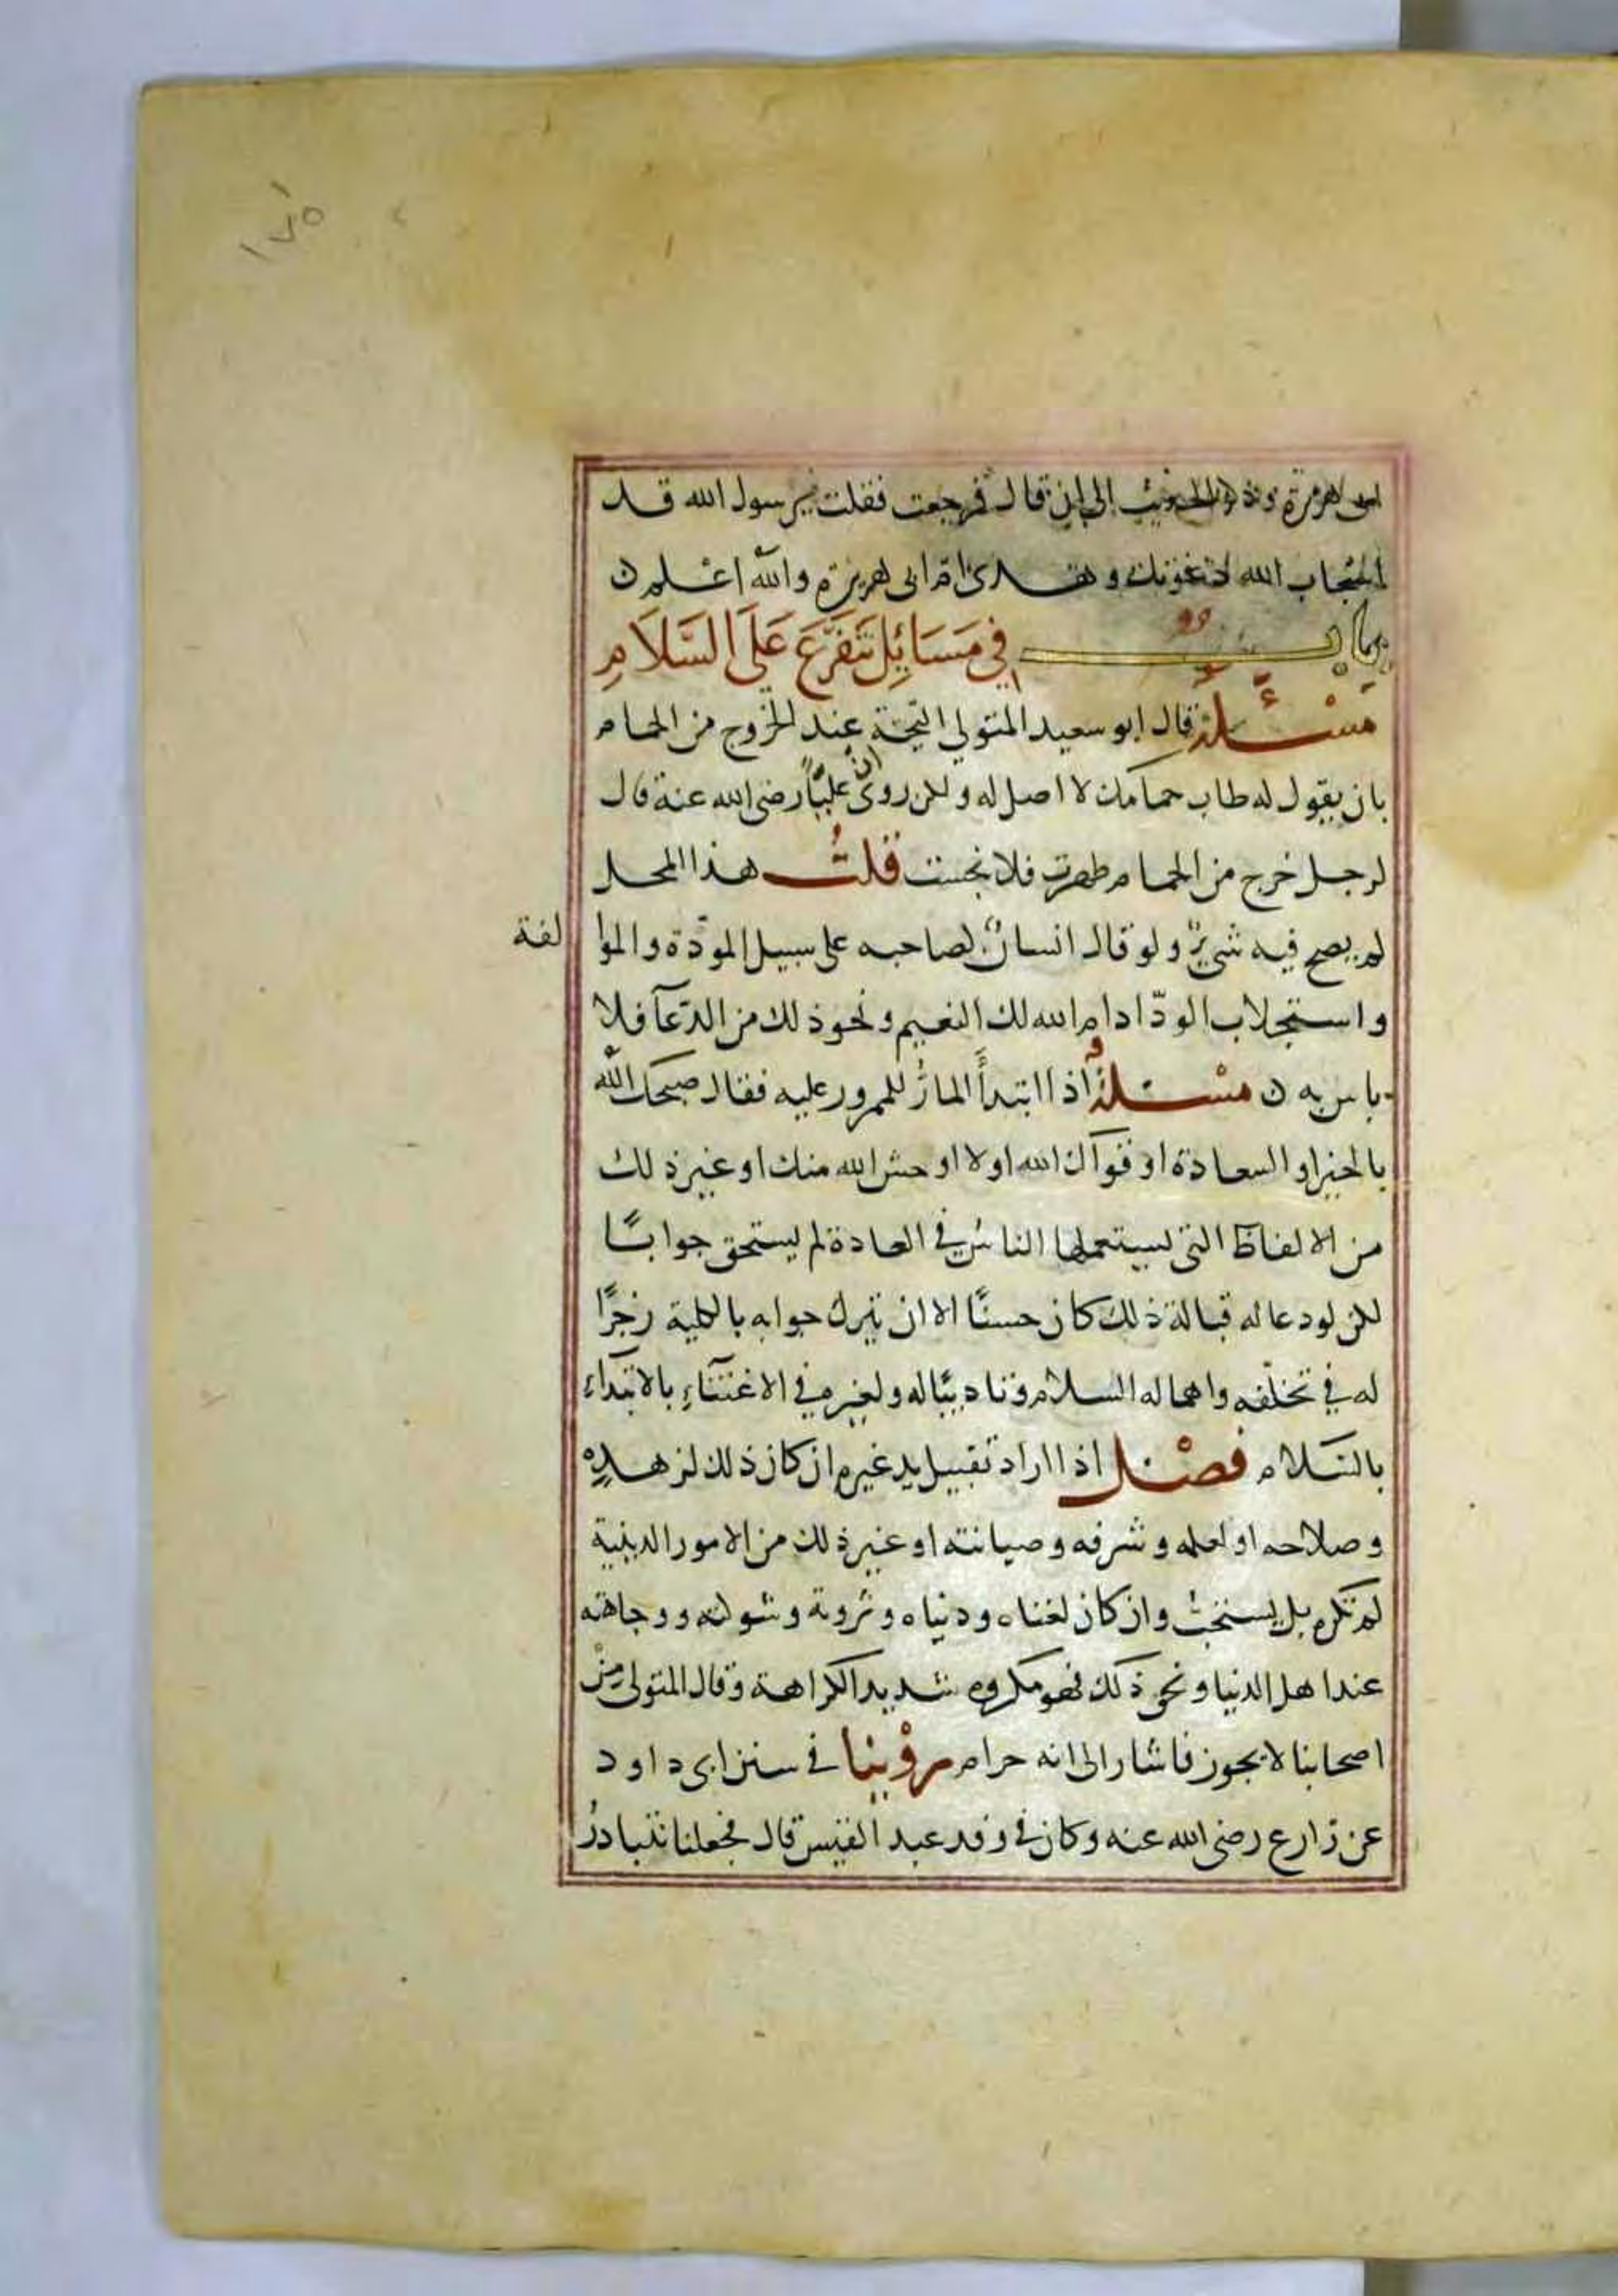 ١٧٥
ابى هريرة وذكر الحديث الى ان قال فرجعت فقلت يرسول الله قد
استجاب الله دعوتك وهدى ام ابى هريرة والله اعلم ن
باب في مَسَائِل تَتَفَرَّعَ عَلَى السَّلَامِ
مَسْئَلة قال ابو سعيد المتولي التحية عند الخروج من الحمام
بان يقول له طاب حمامك لا اصل له ولكن روى ان عليّاً رضى الله عنه قال
لرجل خرج من الحمام طهرت فلا نجست قلت هذا المحل
لم يصح فيه شيءٌ ولو قال انسانٌ لصاحبه على سبيل المودّة والموا لفة
واستجلاب الودّ ادام الله لك النعيم ونحو ذلك من الدّعآ فلا
باس به ن مسْئلة اذا ابتدأ المارُّ للمرور عليه فقال صبحك الله
بالخير او السعادة او قوّاك الله او لا اوحش الله منك او غير ذلك
من الالفاظ التي يستعملها الناس في العادة لم يستحق جوابًا
لكن لو دعا له قبالة ذلك كان حسنًا الا ان يترك جوابه بالكلية زجرًا
له في تخلّفه واهماله السلام وتاديبًا له ولغيره في الاعتنآء بالابتداء
بالسّلام فصْل اذا اراد تقبيل يد غيره ان كان ذلك لزهده
وصلاحه او لعلمه وشرفه وصيانته او غير ذلك من الامور الدينية
لم تكره بل يستحبّ وان كان لغناه ودنياه وثروته وشوكته ووجاهته
عند اهل الدنيا ونحو ذلك فهو مكروه شديد الكراهة وقال المتولى منْ
اصحابنا لا يجوز فاشار الى انه حرام روْينا في سنن ابى داود
عن زارع رضى الله عنه وكان في وفد عبد القيس قال فجعلنا نتبادرُ